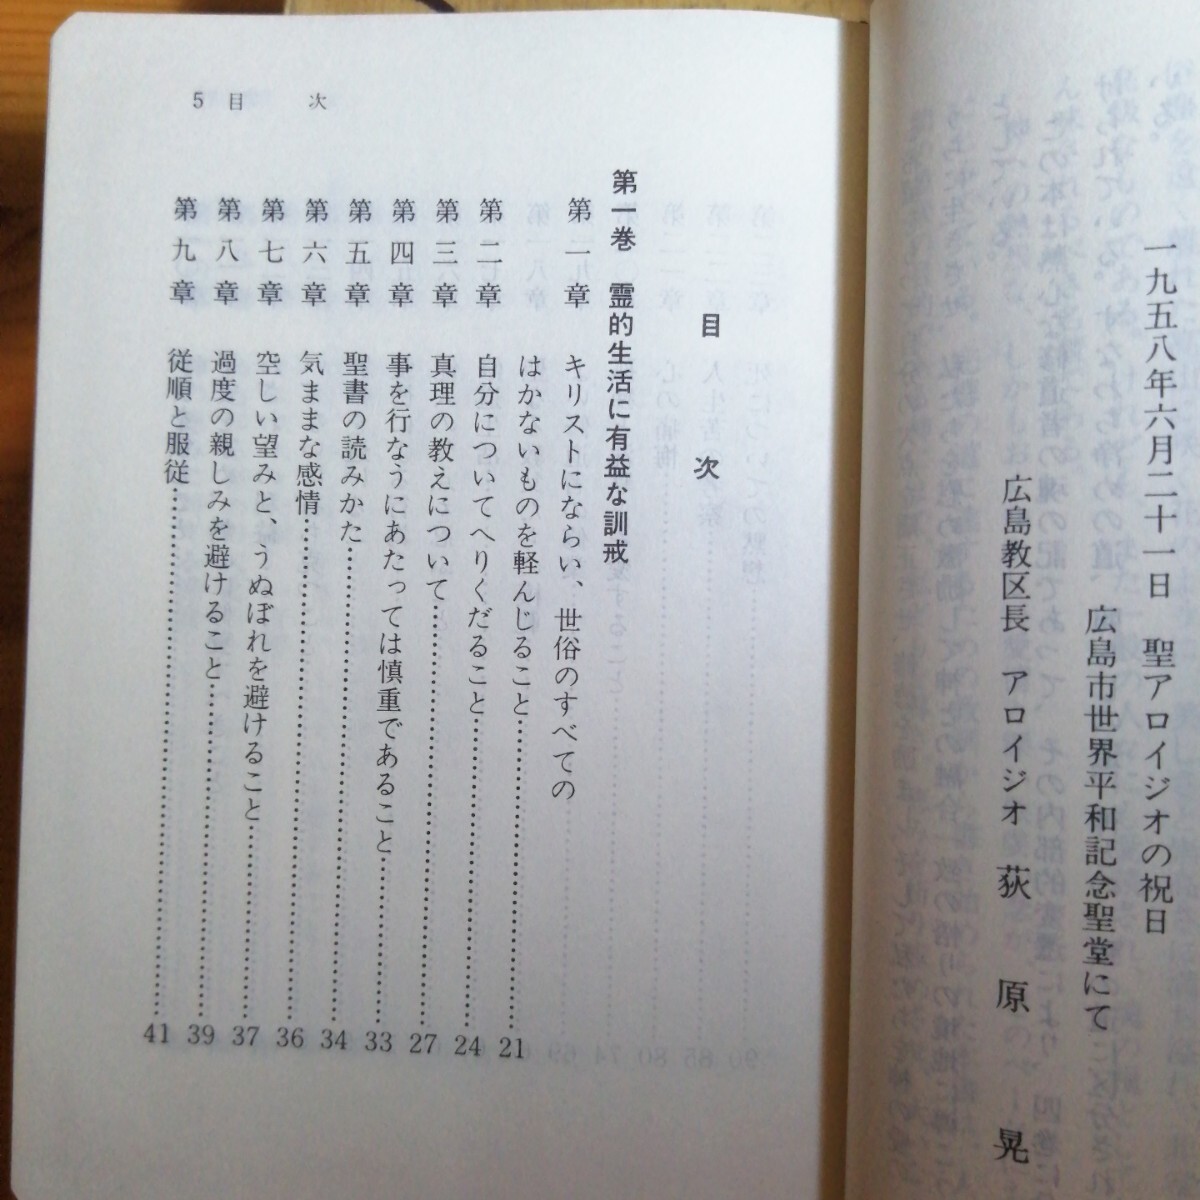 一九五八年六月二十一日 聖アロイジオの祝日
広島市世界平和記念聖堂にて
広島教区長 アロイジオ 荻原 晃
5 目 次
目 次
第一巻 霊的生活に有益な訓戒
第一章 キリストにならい、世俗のすべての
はかないものを軽んじること…………21
第二章 自分についてへりくだること…………24
第三章 真理の教えについて…………27
第四章 事を行なうにあたっては慎重であること…………33
第五章 聖書の読みかた…………34
第六章 気ままな感情…………36
第七章 空しい望みと、うぬぼれを避けること…………37
第八章 過度の親しみを避けること…………39
第九章 従順と服従…………41